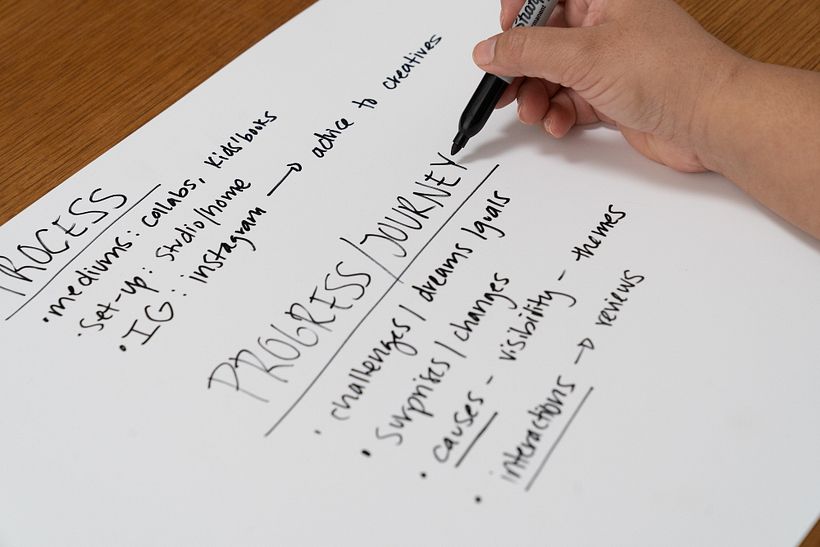 PROCESS
• mediums: collabs, kids/books
• set-up: studio/home
• IG: instagram → advice to creatives
PROGRESS/JOURNEY
• challenges/dreams/goals
• surprises/changes
• causes - visibility - themes
• interactions → reviews
Sharpie